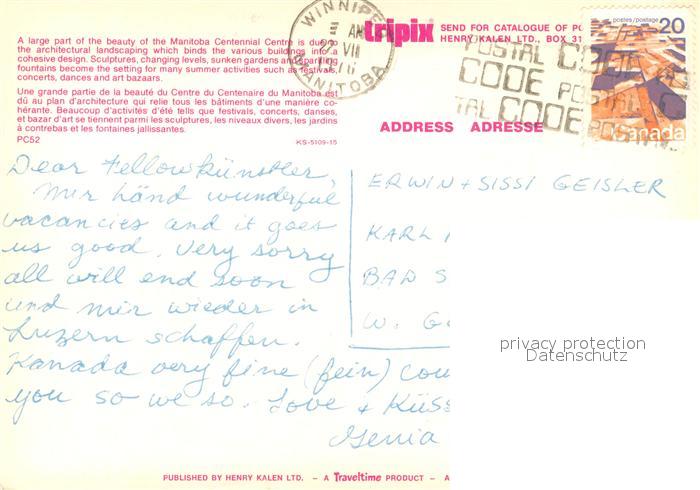 WINNIPEG
AM
22 VII
MANITOBA
tripix
SEND FOR CATALOGUE OF PC
HENRY KALEN LTD., BOX 31
postes/postage 20
Canada
POSTAL CODE
CODE POSTAL
CODE POSTAL
A large part of the beauty of the Manitoba Centennial Centre is due to
the architectural landscaping which binds the various buildings into a
cohesive design. Sculptures, changing levels, sunken gardens and sparkling
fountains become the setting for many summer activities such as festivals,
concerts, dances and art bazaars.
Une grande partie de la beauté du Centre du Centenaire du Manitoba est
dû au plan d'architecture qui relie tous les bâtiments d'une manière co-
hérante. Beaucoup d'activités d'été tels que festivals, concerts, danses,
et bazar d'art se tiennent parmi les sculptures, les niveaux divers, les jardins
à contrebas et les fontaines jallissantes.
PC52
KS-5109-15
ADDRESS ADRESSE
Dear Fellowkünstler,
Mir händ wunderful
vacancies and it goes
us good. Very sorry
all will end soon
und mir wieder in
Luzern schaffen.
Kanada very fine (fein) cou
you so we so. Love + Küss
Genia
ERWIN + SISSI GEISLER
KARL
BAD S
W. G
privacy protection
Datenschutz
PUBLISHED BY HENRY KALEN LTD. – A Traveltime PRODUCT – A